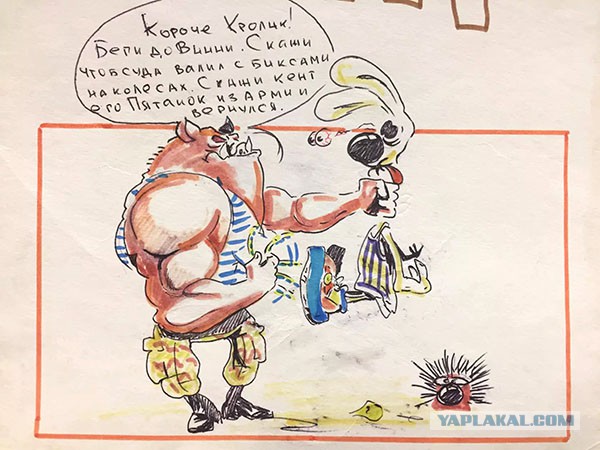 Короче Кролик!
Беги до Винни. Скажи
чтоб сюда валил с биксами
на колесах. Скажи кент
его Пятачок из Армии
вернулся.
YAPLAKAL.COM